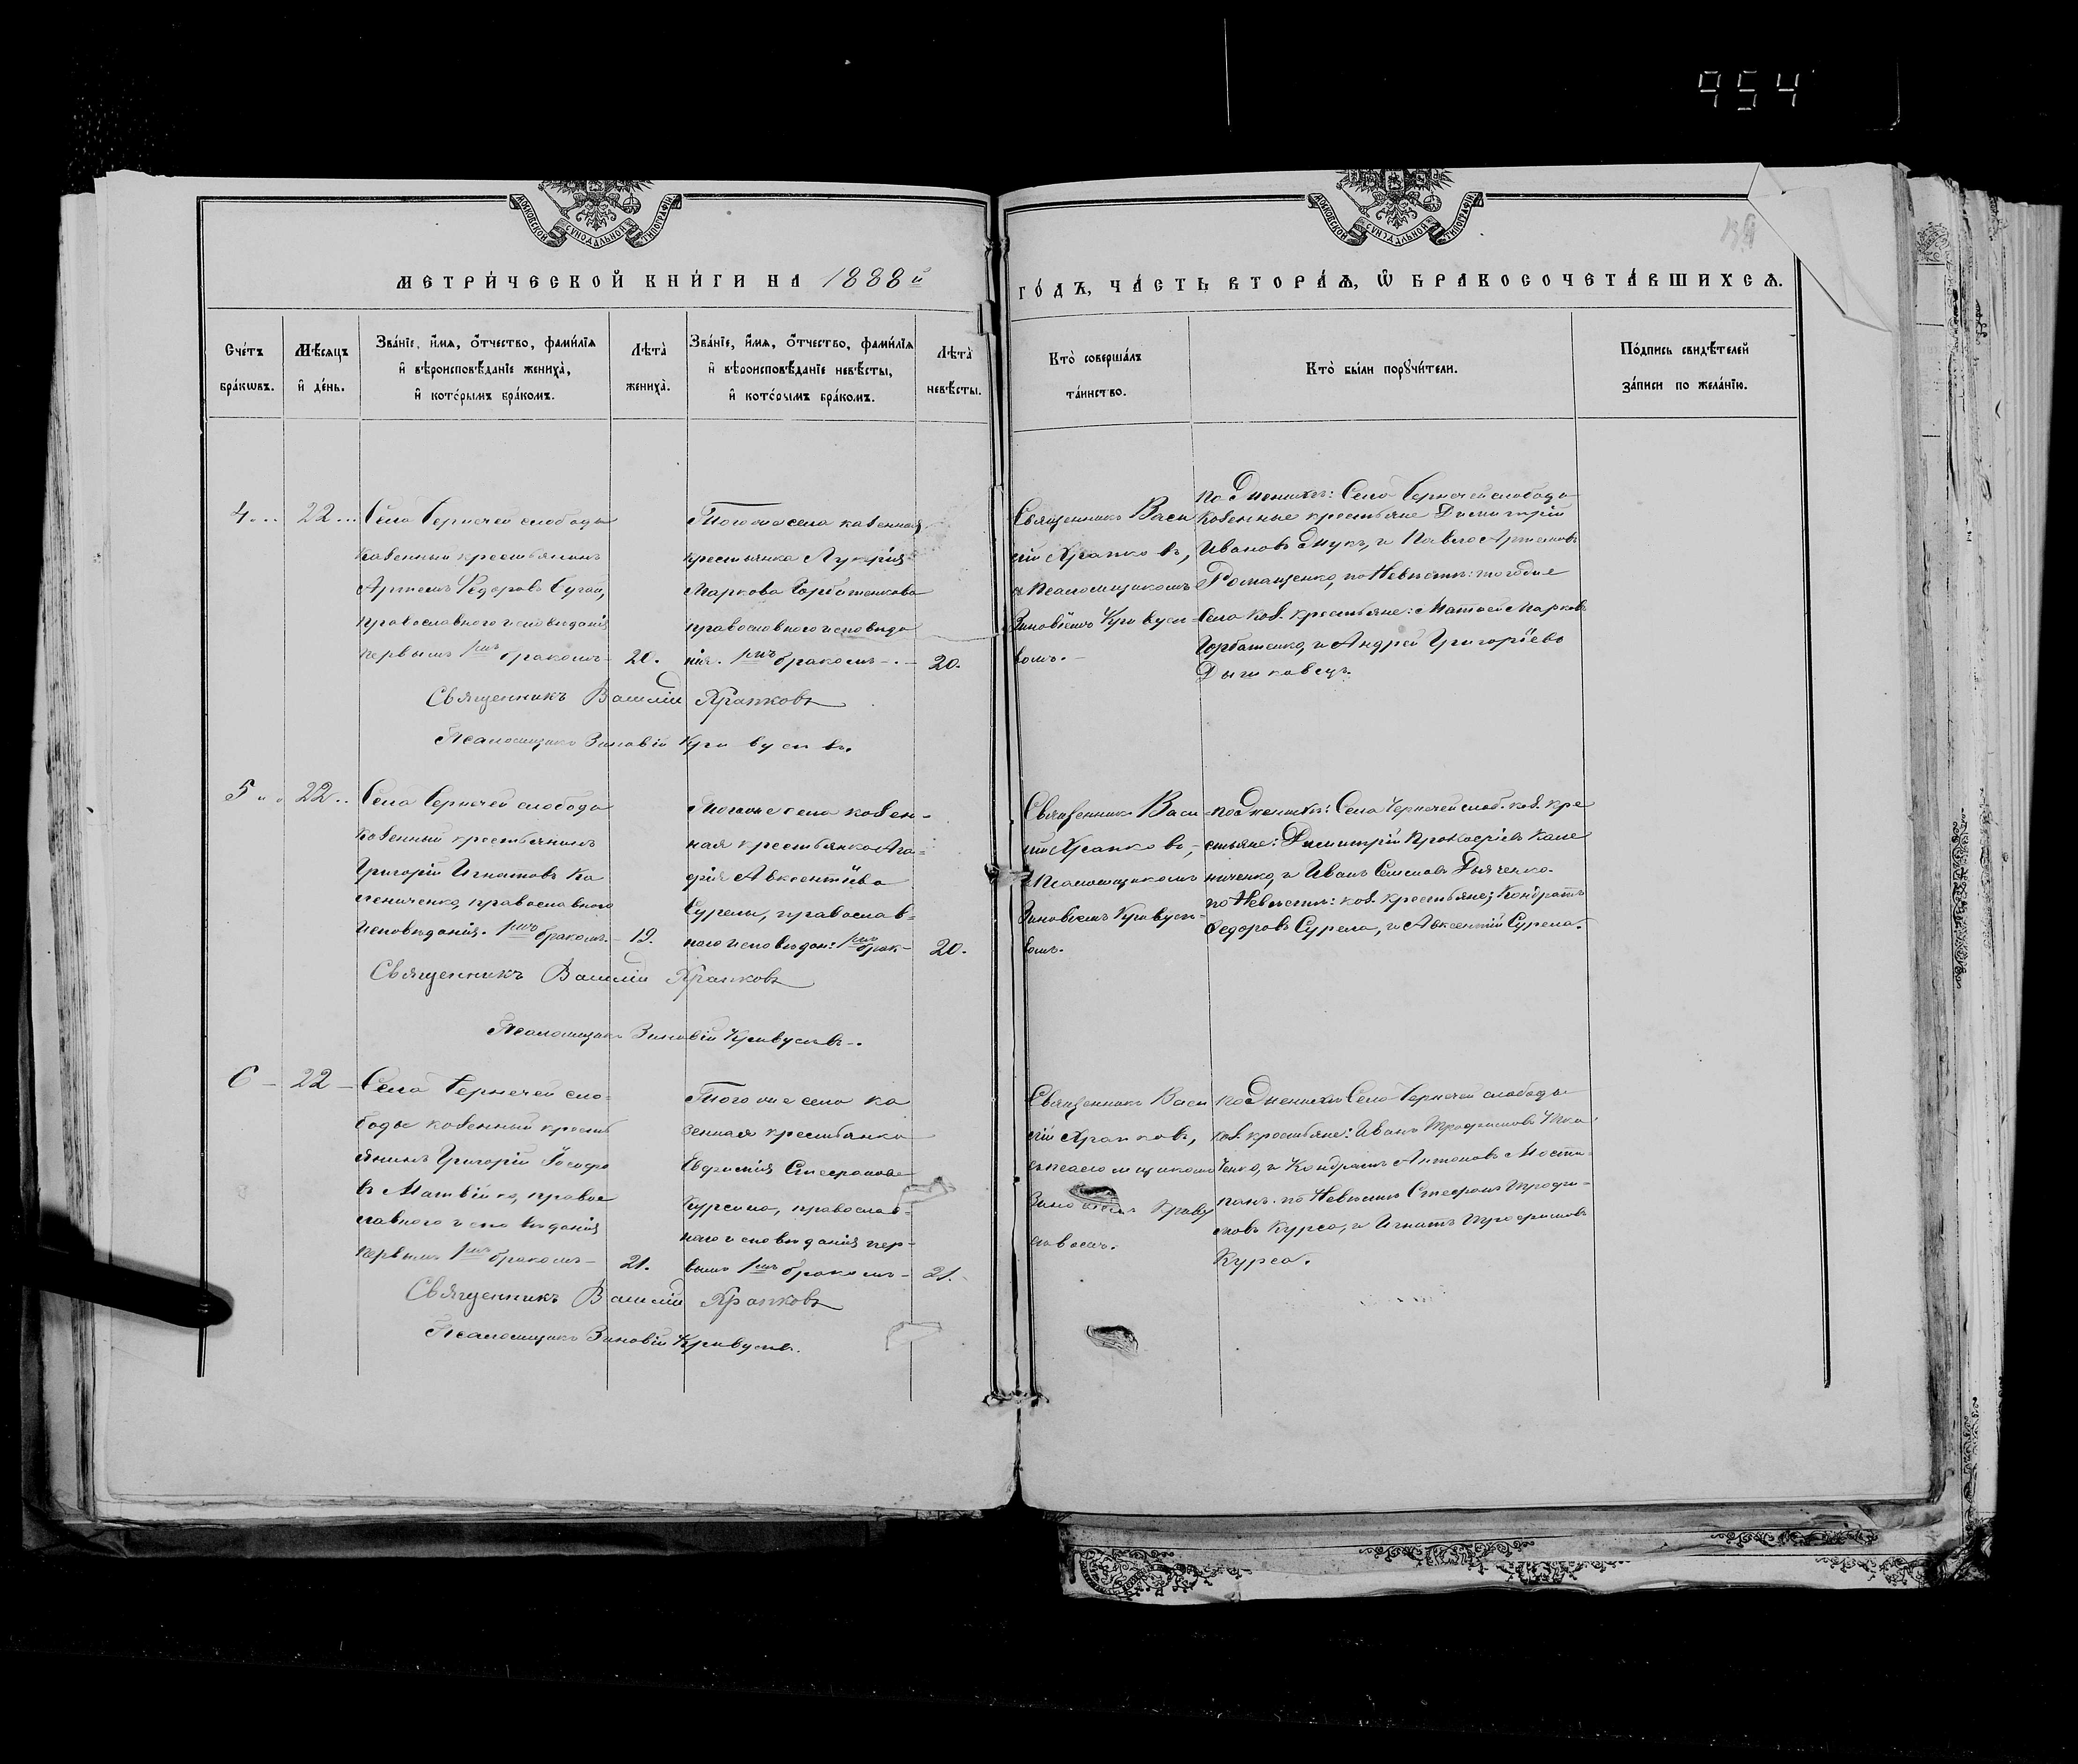 954
МЕТРИЧЕСКОЙ КНИГИ НА 1888й
ГОДЪ, ЧАСТЬ ВТОРАѦ, Ѡ БРАКОСОЧЕТАВШИХСѦ.
Счетъ браковъ.
Мѣсяцъ и день.
Званіе, имя, отчество, фамилія
и вѣроисповѣданіе жениха,
и которымъ бракомъ.
Лѣта
жениха.
Званіе, имя, отчество, фамилія
и вѣроисповѣданіе невѣсты,
и которымъ бракомъ.
Лѣта
невѣсты.
Кто совершалъ
таинство.
Кто были поручители.
Подпись свидѣтелей
записи по желанію.
4 22
Села Чернечей слободы
казенный крестьянинъ
Артемъ Федоровъ Сугай,
православного исповѣданія
первымъ 1мъ бракомъ 20.
Тогоже села казенная
крестьянка Лукерія
Маркова Горбатенкова
православного исповѣда
нія. 1мъ бракомъ 20.
Священникъ Васи
лій Храпковъ,
съ Псаломщикомъ
Зиновіемъ Кривуси
вомъ.
по Женихѣ: Села Чернечей слободы
казенные крестьяне Димитрій
Ивановъ Жукъ, и Павелъ Артемовъ
Романченко, по Невѣстѣ: тогоже
Села каз. крестьяне: Матвей Марковъ
Горбатенко, и Андрей Григоріевъ
Священникъ Василій Храпковъ
Псаломщикъ Зиновій Кривусивъ.
5 22
Села Чернечей слободы
казенный крестьянинъ
Григорій Игнатовъ Ка
лениченко, православного
исповѣданія. 1мъ бракомъ. 19.
Тогоже села казен-
ная крестьянка Ага-
фія Авксентіева
Сурела, православ-
ного исповѣдан: 1мъ брак- 20.
Священникъ Васи
лій Храпковъ,
съ Псаломщикомъ
Зиновіемъ Кривуси-
вомъ.
по Женихѣ: Села Чернечей слоб. каз. кре
стьяне: Димитрій Прокофіевъ Кале
ниченко, и Иванъ Семеновъ Дьяченко.
по Невѣстѣ: каз. крестьяне; Кондратъ
Федоровъ Сурела, и Авксентій Сурела.
Священникъ Василій Храпковъ
Псаломщикъ Зиновій Кривусивъ.
6 22
Села Чернечей сло-
боды казенный кресть
янинъ Григорій Іосифо
въ Матвійко, правос
лавного исповѣданія
первымъ 1мъ бракомъ 21.
Тогоже села ка
зенная крестьянка
Евфимія Стефанова
Курсова, православ-
ного исповѣданія пер-
вымъ 1мъ бракомъ 21.
Священникъ Васи
лій Храпковъ,
съ псаломщикомъ
Зиновіемъ Криву
сивомъ.
по Женихѣ Села Чернечей слободы
каз. крестьяне: Иванъ Трофимовъ Ткa
ченко, и Кондратъ Антоновъ Мости
панъ. по Невѣстѣ Стефанъ Трофи-
мовъ Курса, и Игнатъ Трофимовъ
Курса.
Священникъ Василій Храпковъ
Псаломщикъ Зиновій Кривусивъ.